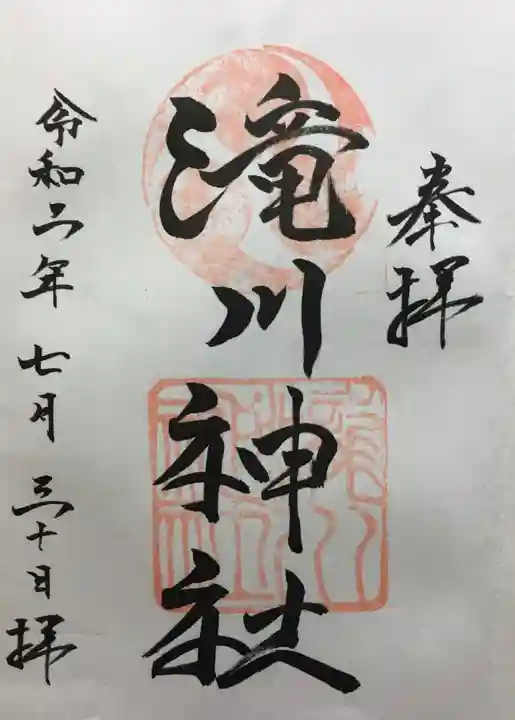 奉拝
滝川神社
令和二年 七月 三十日拝